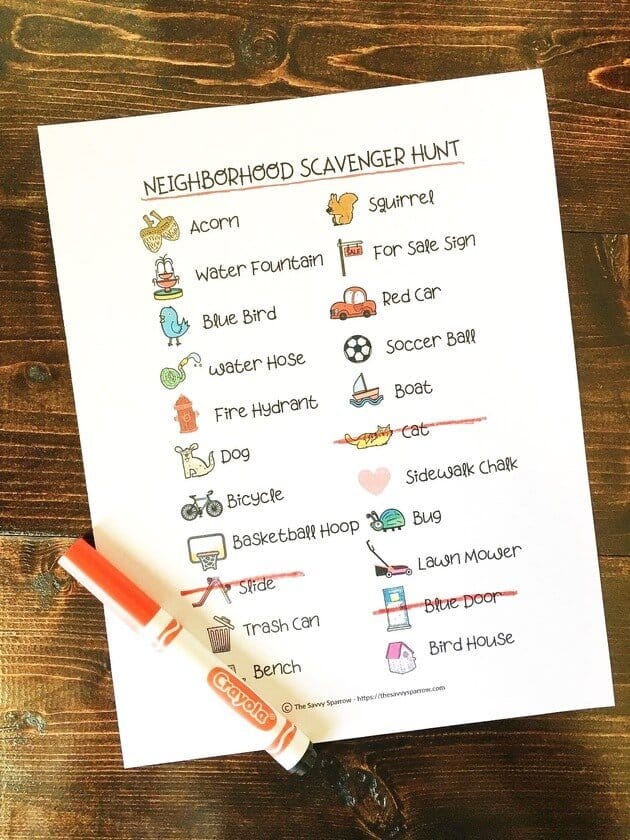 NEIGHBORHOOD SCAVENGER HUNT
Acorn
Water Fountain
Blue Bird
Water Hose
Fire Hydrant
Dog
Bicycle
Basketball Hoop
Slide
Trash Can
Bench
Squirrel
SALE
For Sale Sign
Red Car
Soccer Ball
Boat
Cat
Sidewalk Chalk
Bug
Lawn Mower
Blue Door
Bird House
© The Savvy Sparrow - https://thesavvysparrow.com
Crayola